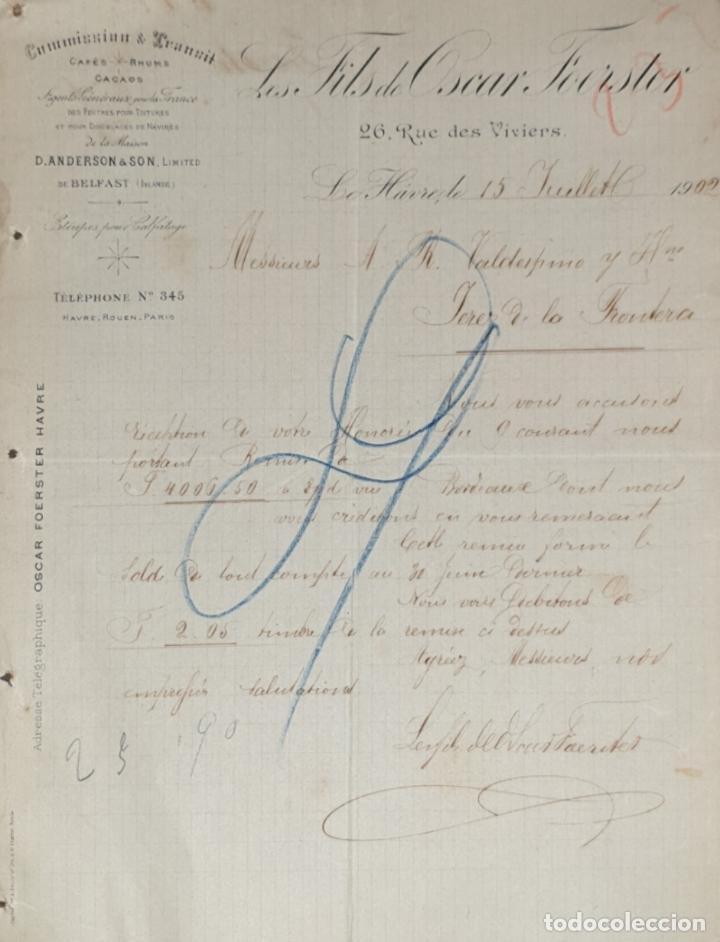 Commission & Transit
CAFÉS RHUMS
CACAOS
Agents Généraux pour la France
DES FEUTRES POUR TOITURES
ET POUR DOUBLAGES DE NAVIRES
de la Maison
D. ANDERSON & SON, LIMITED
DE BELFAST (IRLANDE)
Etoupes pour Calfatage
TÉLÉPHONE Nº 345
HAVRE, ROUEN, PARIS
Adresse Télégraphique OSCAR FOERSTER HAVRE
Les Fils de Oscar Foerster
26, Rue des Viviers.
Le Hâvre, le 15 Juillet 1902
Messieurs A. R. Valdespino y Hno
Jerez de la Frontera
Nous vous accusons
réception de votre honorée du 9 courant nous
portant Remise de
F. 4006.50 Bordeaux dont nous
vous créditons en vous remerciant
Cette remise forme le
solde de tout compte au 30 Juin dernier
Nous vous débitons de
F. 2.05 timbre de la remise ci dessus
Agréez, Messieurs, nos
empressées salutations
Les fils de Oscar Foerster
25 '90
todocoleccion.net